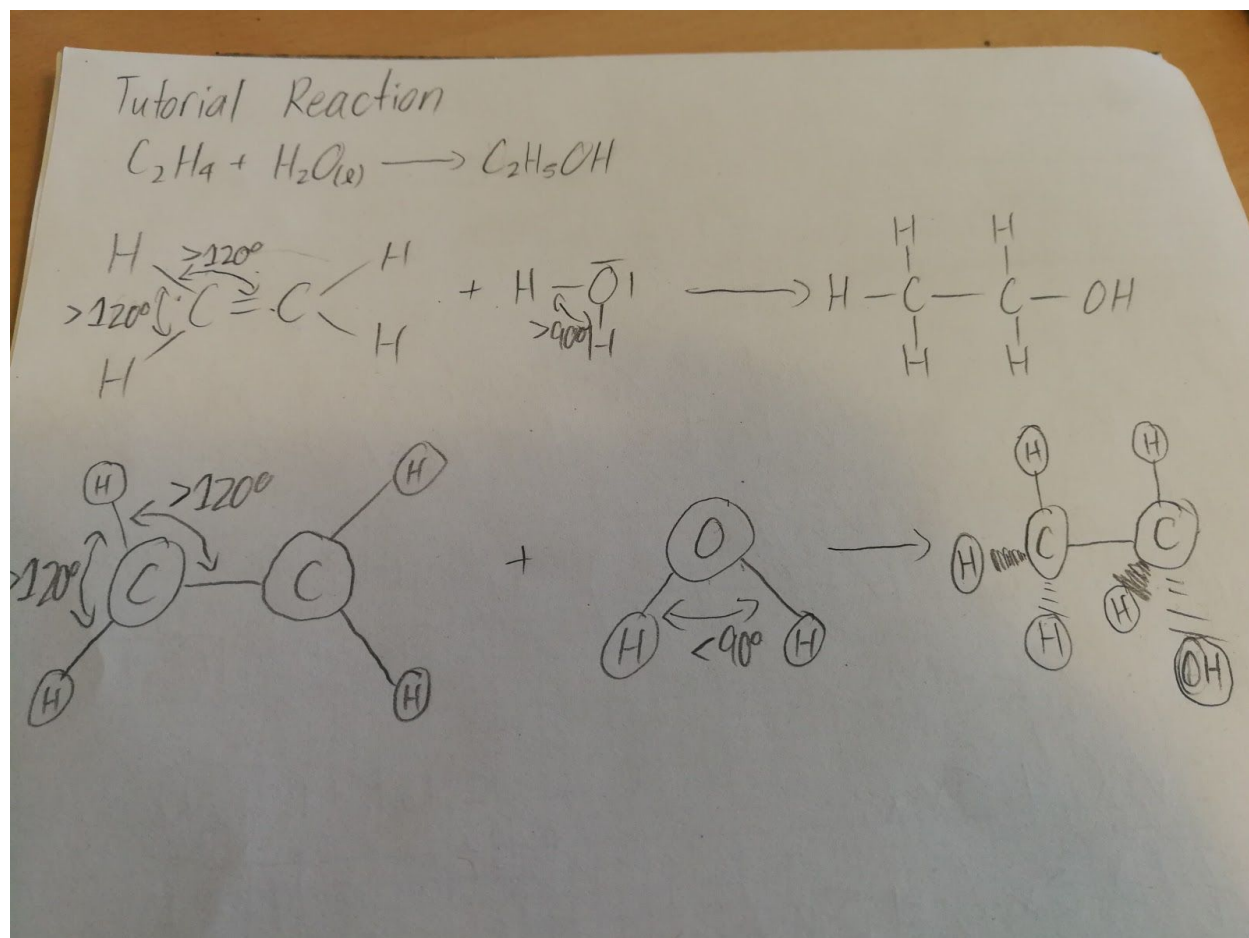 Tutorial Reaction
C₂H₄ + H₂O(l) → C₂H₅OH
H >120° H H H
>120° C = C + H – O → H – C – C – OH
H H >90° H H H
H >120° H H H
>120° C C + O → H C C
H H H <90° H H H OH